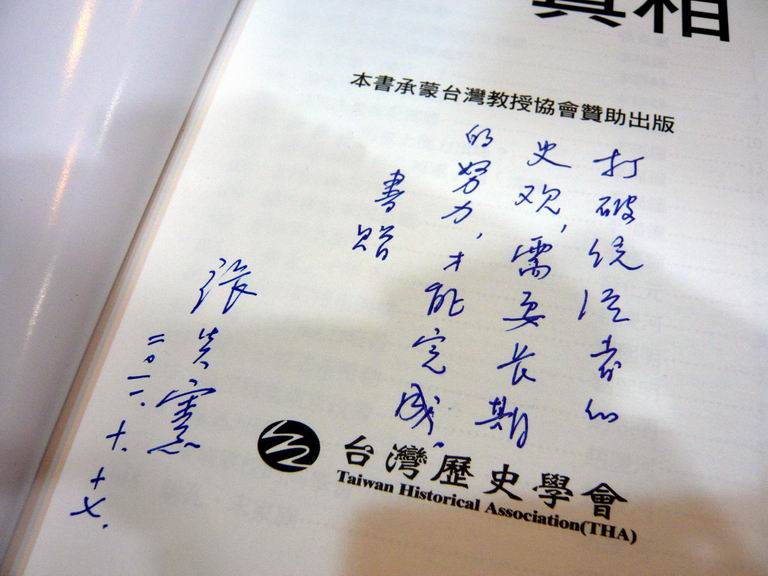 真相
本書承蒙台灣教授協會贊助出版
打破统治者的
史观,需要長期
的努力,才能完成。
書贈
張炎憲
二〇一二.十.十七.
台灣歷史學會
Taiwan Historical Association(THA)